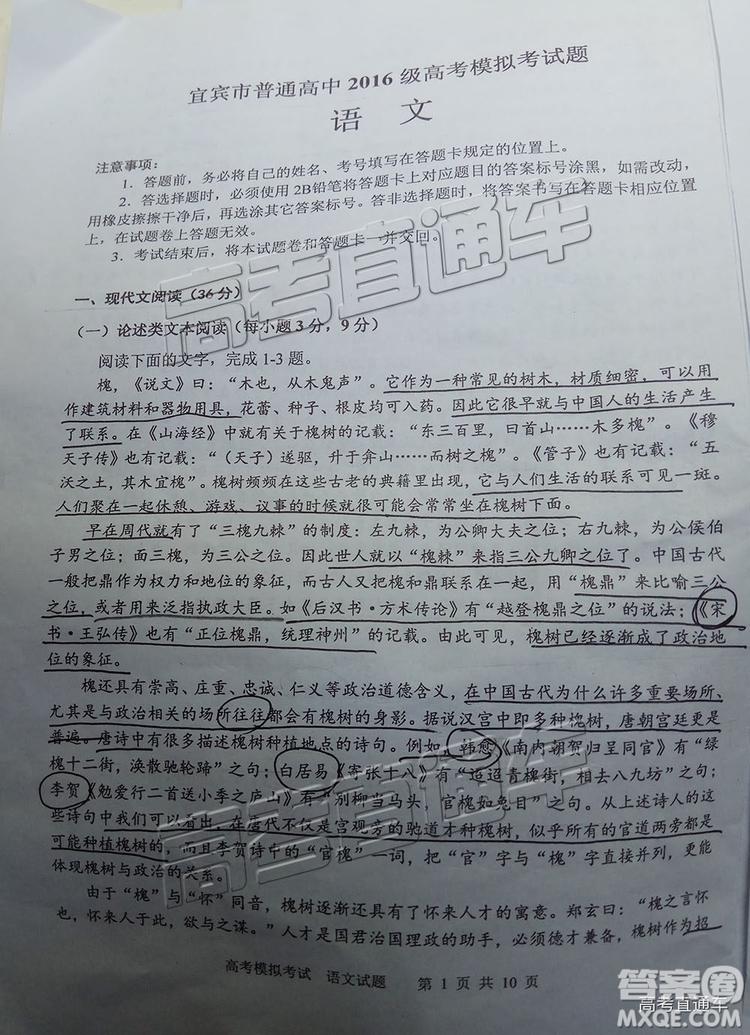 宜宾市普通高中 2016 级高考模拟考试题
语 文
注意事项：
1．答题前，务必将自己的姓名、考号填写在答题卡规定的位置上。
2．答选择题时，必须使用 2B铅笔将答题卡上对应题目的答案标号涂黑，如需改动，
用橡皮擦擦干净后，再选涂其它答案标号。答非选择题时，将答案书写在答题卡相应位置
上，在试题卷上答题无效。
3．考试结束后，将本试题卷和答题卡一并交回。
一、现代文阅读（36 分）
（一）论述类文本阅读（每小题 3 分，9 分）
阅读下面的文字，完成 1-3 题。
槐，《说文》曰：“木也，从木鬼声”。它作为一种常见的树木，材质细密，可以用
作建筑材料和器物用具，花蕾、种子、根皮均可入药。因此它很早就与中国人的生活产生
了联系。在《山海经》中就有关于槐树的记载：“东三百里，曰首山……木多槐”。《穆
天子传》也有记载：“（天子）遂驱，升于弇山……而树之槐”。《管子》也有记载：“五
沃之土，其木宜槐”。槐树频频在这些古老的典籍里出现，它与人们生活的联系可见一斑。
人们聚在一起休憩、游戏、议事的时候就很可能会常常坐在槐树下面。
早在周代就有了“三槐九棘”的制度：左九棘，为公卿大夫之位；右九棘，为公侯伯
子男之位；面三槐，为三公之位。因此世人就以“槐棘”来指三公九卿之位了。中国古代
一般把鼎作为权力和地位的象征，而古人又把槐和鼎联系在一起，用“槐鼎”来比喻三公
之位，或者用来泛指执政大臣。如《后汉书·方术传论》有“越登槐鼎之位”的说法；《宋
书·王弘传》也有“正位槐鼎，统理神州”的记载。由此可见，槐树已经逐渐成了政治地
位的象征。
槐还具有崇高、庄重、忠诚、仁义等政治道德含义，在中国古代为什么许多重要场所、
尤其是与政治相关的场所往往都会有槐树的身影。据说汉宫中即多种槐树，唐朝宫廷更是
普遍。唐诗中有很多描述槐树种植地点的诗句。例如，韩愈《南内朝贺归呈同官》有“绿
槐十二街，涣散驰轮蹄”之句；白居易《寄张十八》有“迢迢青槐街，相去八九坊”之句；
李贺《勉爱行二首送小季之庐山》有“别柳当马头，官槐如兔目”之句。从上述诗人的这
些诗句中我们可以看出，在唐代不仅是宫观旁的驰道才种槐树，似乎所有的官道两旁都是
可能种植槐树的，而且李贺诗中的“官槐”一词，把“官”字与“槐”字直接并列，更能
体现槐树与政治的关系。
由于“槐”与“怀”同音，槐树逐渐还具有了怀来人才的寓意。郑玄曰：“槐之言怀
也，怀来人于此，欲与之谋。”人才是国君治国理政的助手，必须德才兼备，槐树作为招
高考模拟考试 语文试题 第 1 页 共 10 页
高考直通车
高考直通车
答案圈
高考直通车
MXQE.COM